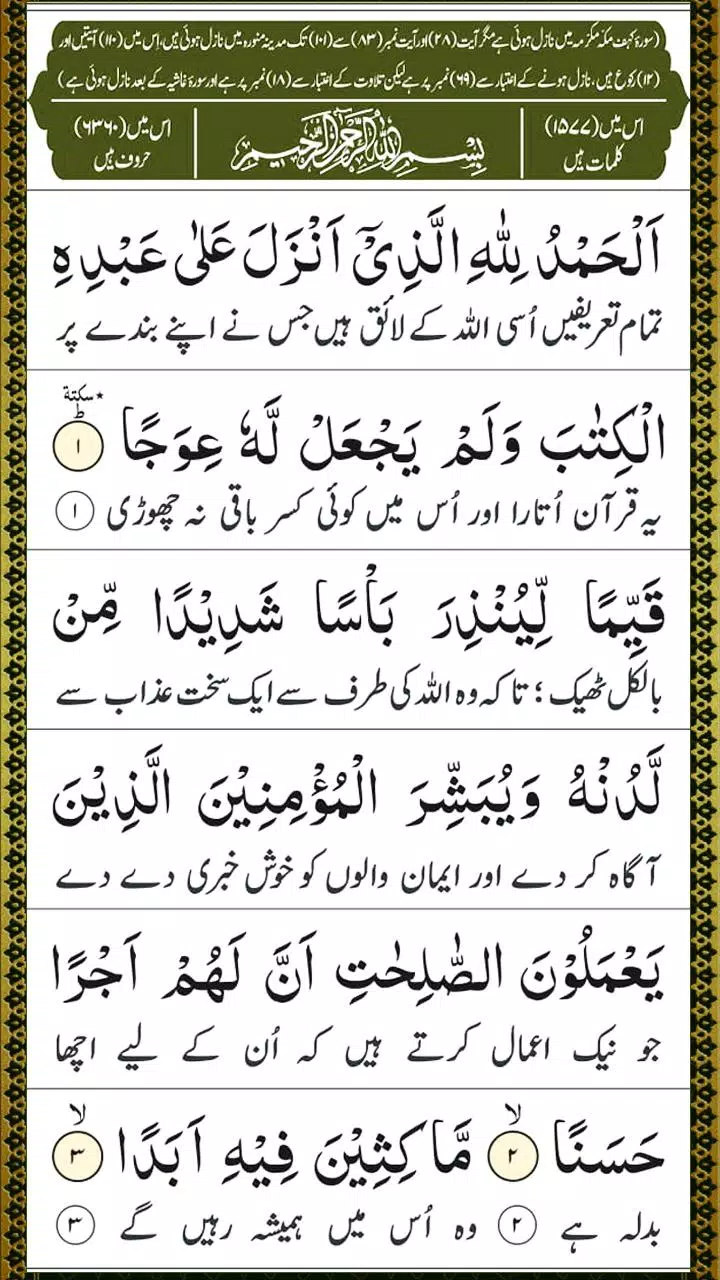 (سورۂ کہف مکہ مکرمہ میں نازل ہوئی ہے مگر آیت (۲۸) اور آیت نمبر (۸۳) سے (۱۰۱) تک مدینہ منورہ میں نازل ہوئی ہیں، اِس میں (۱۱۰) آیتیں اور
(۱۲) رکوع ہیں، نازل ہونے کے اعتبار سے (۶۹) نمبر پر ہے لیکن تلاوت کے اعتبار سے (۱۸) نمبر پر ہے اور سورۂ غاشیہ کے بعد نازل ہوئی ہے)
اس میں (۱۵۷۷) کلمات ہیں
بِسْمِ اللهِ الرَّحْمٰنِ الرَّحِيْمِ
اس میں (۶۳۶۰) حروف ہیں
اَلْحَمْدُ لِلّٰهِ الَّذِیْۤ اَنْزَلَ عَلٰی عَبْدِهِ
تمام تعریفیں اُسی اللہ کے لائق ہیں جس نے اپنے بندے پر
الْكِتٰبَ وَلَمْ يَجْعَلْ لَّهٗ عِوَجًا ٚ ؕ * سكتة ۱
یہ قرآن اُتارا اور اُس میں کوئی کسر باقی نہ چھوڑی ۱
قَيِّمًا لِّيُنْذِرَ بَاْسًا شَدِيْدًا مِّنْ
بالکل ٹھیک ؛ تا کہ وہ اللہ کی طرف سے ایک سخت عذاب سے
لَّدُنْهُ وَيُبَشِّرَ الْمُؤْمِنِيْنَ الَّذِيْنَ
آگاہ کر دے اور ایمان والوں کو خوش خبری دے دے
يَعْمَلُوْنَ الصّٰلِحٰتِ اَنَّ لَهُمْ اَجْرًا
جو نیک اعمال کرتے ہیں کہ اُن کے لیے اچھا
حَسَنًا ۙ ۲ مَّاكِثِيْنَ فِيْهِ اَبَدًا ۙ ۳
بدلہ ہے ۲ وہ اُس میں ہمیشہ رہیں گے ۳